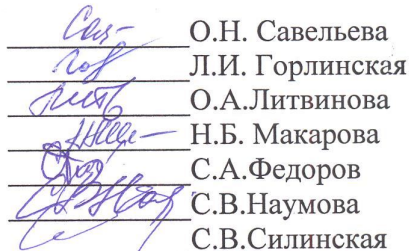 О.Н. Савельева
Л.И. Горлинская
О.А.Литвинова
Н.Б. Макарова
С.А.Федоров
С.В.Наумова
С.В.Силинская